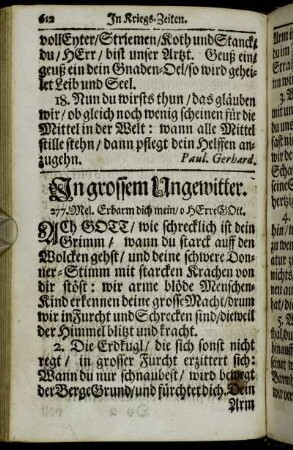 612 In Kriegs-Zeiten.
voll Eyter/Striemen/Koth und Stanck/
du/HErr/bist unser Artzt. Geuß ein/
geuß ein dein Gnaden-Oel/so wird gehei-
let Leib und Seel.
18. Nun du wirsts thun/das gläuben
wir/ob gleich noch wenig scheinen für die
Mittel in der Welt: wann alle Mittel
stille stehn/dann pflegt dein Helffen an-
zugehn. Paul. Gerhard.
In grossem Ungewitter.
277. Mel. Erbarm dich mein/o HErre GOtt.
ACh GOTT/wie schrecklich ist dein
Grimm/wann du starck auff den
Wolcken gehst/und deine schwere Don-
ner-Stimm mit starcken Krachen von
dir stöst: wir arme blöde Menschen-
Kind erkennen deine grosse Macht/drum
wir in Furcht und Schrecken sind/dieweil
der Himmel blitzt und kracht.
2. Die Erdkugl/die sich sonst nicht
regt/in grosser Furcht erzittert sich:
Wann du nur schnaubest/wird bewegt
der Berge Grund/und fürchtet dich. Dein
Arm